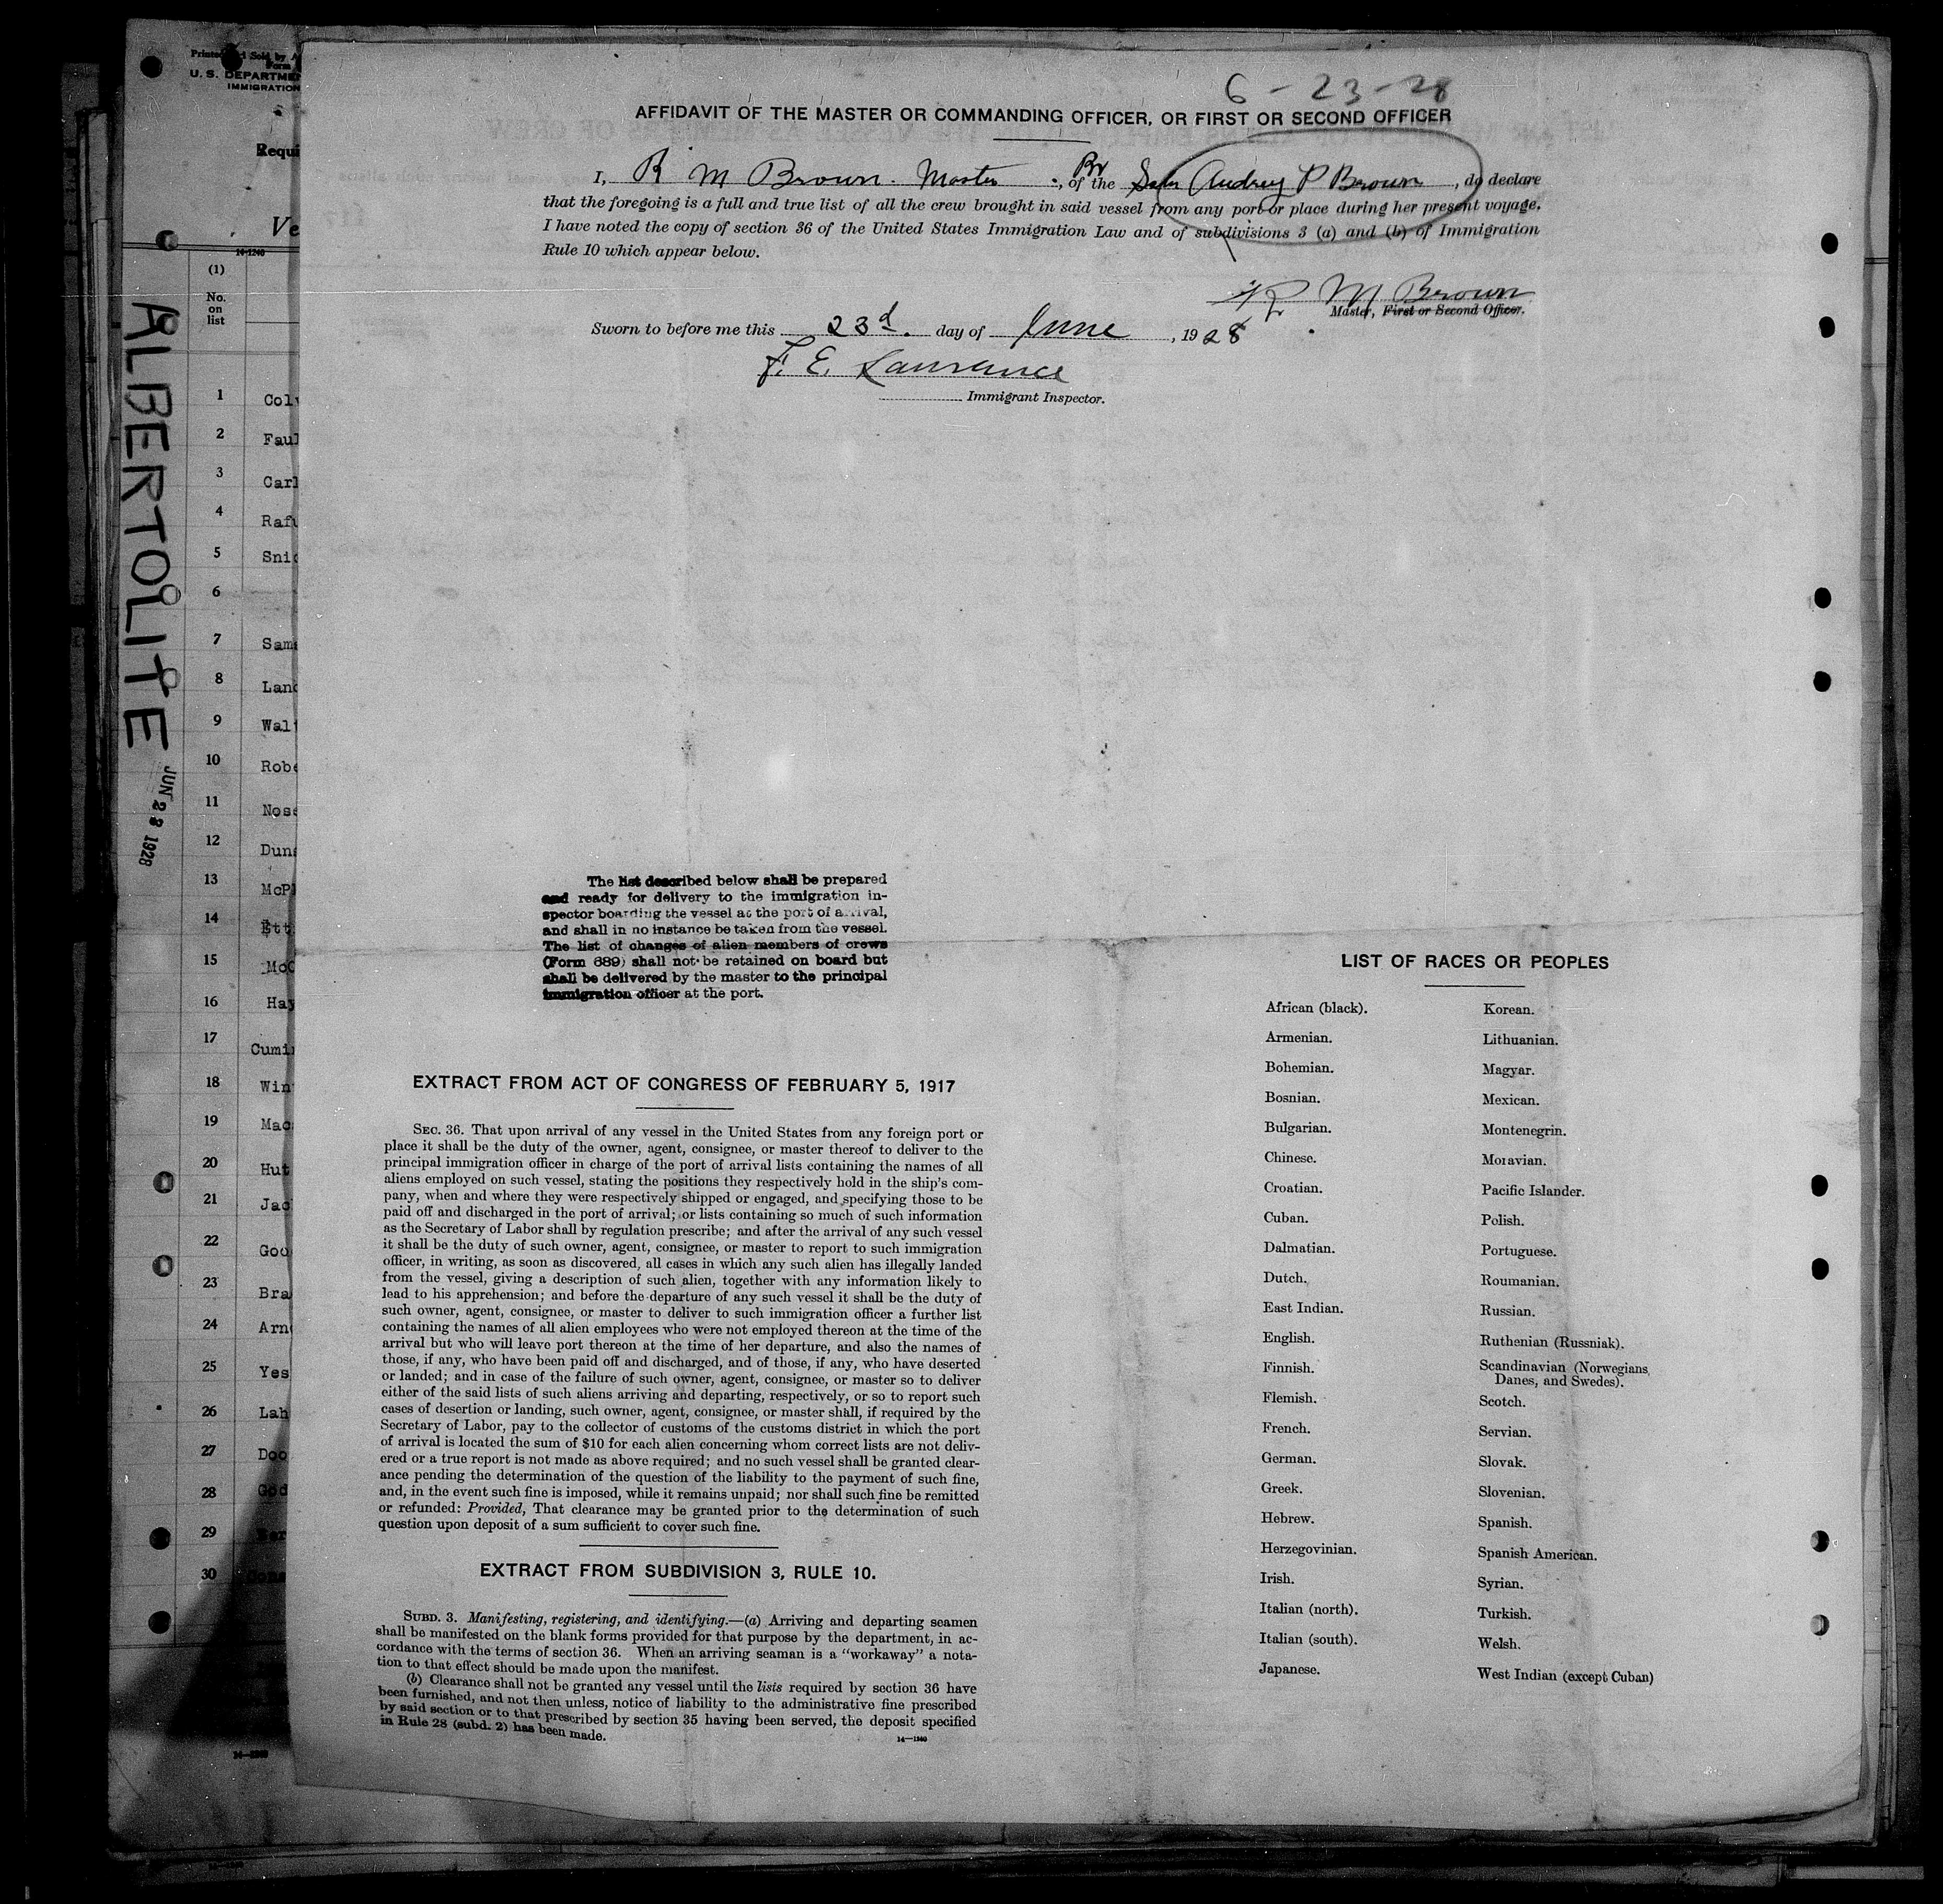 Printed and Sold by A
Form
U. S. DEPARTME
IMMIGRATION
Requi
Ve
14-1240
(1)
No.
on
list
1 Col
2 Faul
3 Carl
4 Rafu
5 Snid
6
7 Sam
8 Land
9 Walt
10 Robe
11 Nose
12 Duns
13 McP
14 Ett
15 McC
16 Hay
17 Cumi
18 Win
19 Mac
20 Hut
21 Jac
22 Goo
23 Bra
24 Arn
25 Yes
26 Lah
27 Doo
28 God
29
30
ALBERTOLITE
JUN 23 1928
6-23-28
AFFIDAVIT OF THE MASTER OR COMMANDING OFFICER, OR FIRST OR SECOND OFFICER
I, R M Brown. Master, of the Br Schr Audrey P Brown, do declare
that the foregoing is a full and true list of all the crew brought in said vessel from any port or place during her present voyage.
I have noted the copy of section 36 of the United States Immigration Law and of subdivisions 3 (a) and (b) of Immigration
Rule 10 which appear below.
R M Brown
Master, First or Second Officer.
Sworn to before me this 23d. day of June, 1928
F. E. Lawrance
Immigrant Inspector.
The list described below shall be prepared
and ready for delivery to the immigration in-
spector boarding the vessel at the port of arrival,
and shall in no instance be taken from the vessel.
The list of changes of alien members of crews
(Form 689) shall not be retained on board but
shall be delivered by the master to the principal
immigration officer at the port.
EXTRACT FROM ACT OF CONGRESS OF FEBRUARY 5, 1917
SEC. 36. That upon arrival of any vessel in the United States from any foreign port or
place it shall be the duty of the owner, agent, consignee, or master thereof to deliver to the
principal immigration officer in charge of the port of arrival lists containing the names of all
aliens employed on such vessel, stating the positions they respectively hold in the ship's com-
pany, when and where they were respectively shipped or engaged, and specifying those to be
paid off and discharged in the port of arrival; or lists containing so much of such information
as the Secretary of Labor shall by regulation prescribe; and after the arrival of any such vessel
it shall be the duty of such owner, agent, consignee, or master to report to such immigration
officer, in writing, as soon as discovered, all cases in which any such alien has illegally landed
from the vessel, giving a description of such alien, together with any information likely to
lead to his apprehension; and before the departure of any such vessel it shall be the duty of
such owner, agent, consignee, or master to deliver to such immigration officer a further list
containing the names of all alien employees who were not employed thereon at the time of the
arrival but who will leave port thereon at the time of her departure, and also the names of
those, if any, who have been paid off and discharged, and of those, if any, who have deserted
or landed; and in case of the failure of such owner, agent, consignee, or master so to deliver
either of the said lists of such aliens arriving and departing, respectively, or so to report such
cases of desertion or landing, such owner, agent, consignee, or master shall, if required by the
Secretary of Labor, pay to the collector of customs of the customs district in which the port
of arrival is located the sum of $10 for each alien concerning whom correct lists are not deliv-
ered or a true report is not made as above required; and no such vessel shall be granted clear-
ance pending the determination of the question of the liability to the payment of such fine,
and, in the event such fine is imposed, while it remains unpaid; nor shall such fine be remitted
or refunded: Provided, That clearance may be granted prior to the determination of such
question upon deposit of a sum sufficient to cover such fine.
EXTRACT FROM SUBDIVISION 3, RULE 10.
SUBD. 3. Manifesting, registering, and identifying.—(a) Arriving and departing seamen
shall be manifested on the blank forms provided for that purpose by the department, in ac-
cordance with the terms of section 36. When an arriving seaman is a "workaway" a nota-
tion to that effect should be made upon the manifest.
(b) Clearance shall not be granted any vessel until the lists required by section 36 have
been furnished, and not then unless, notice of liability to the administrative fine prescribed
by said section or to that prescribed by section 35 having been served, the deposit specified
in Rule 28 (subd. 2) has been made.
14—1240
LIST OF RACES OR PEOPLES
African (black).
Armenian.
Bohemian.
Bosnian.
Bulgarian.
Chinese.
Croatian.
Cuban.
Dalmatian.
Dutch.
East Indian.
English.
Finnish.
Flemish.
French.
German.
Greek.
Hebrew.
Herzegovinian.
Irish.
Italian (north).
Italian (south).
Japanese.
Korean.
Lithuanian.
Magyar.
Mexican.
Montenegrin.
Moravian.
Pacific Islander.
Polish.
Portuguese.
Roumanian.
Russian.
Ruthenian (Russniak).
Scandinavian (Norwegians,
Danes, and Swedes).
Scotch.
Servian.
Slovak.
Slovenian.
Spanish.
Spanish American.
Syrian.
Turkish.
Welsh.
West Indian (except Cuban)